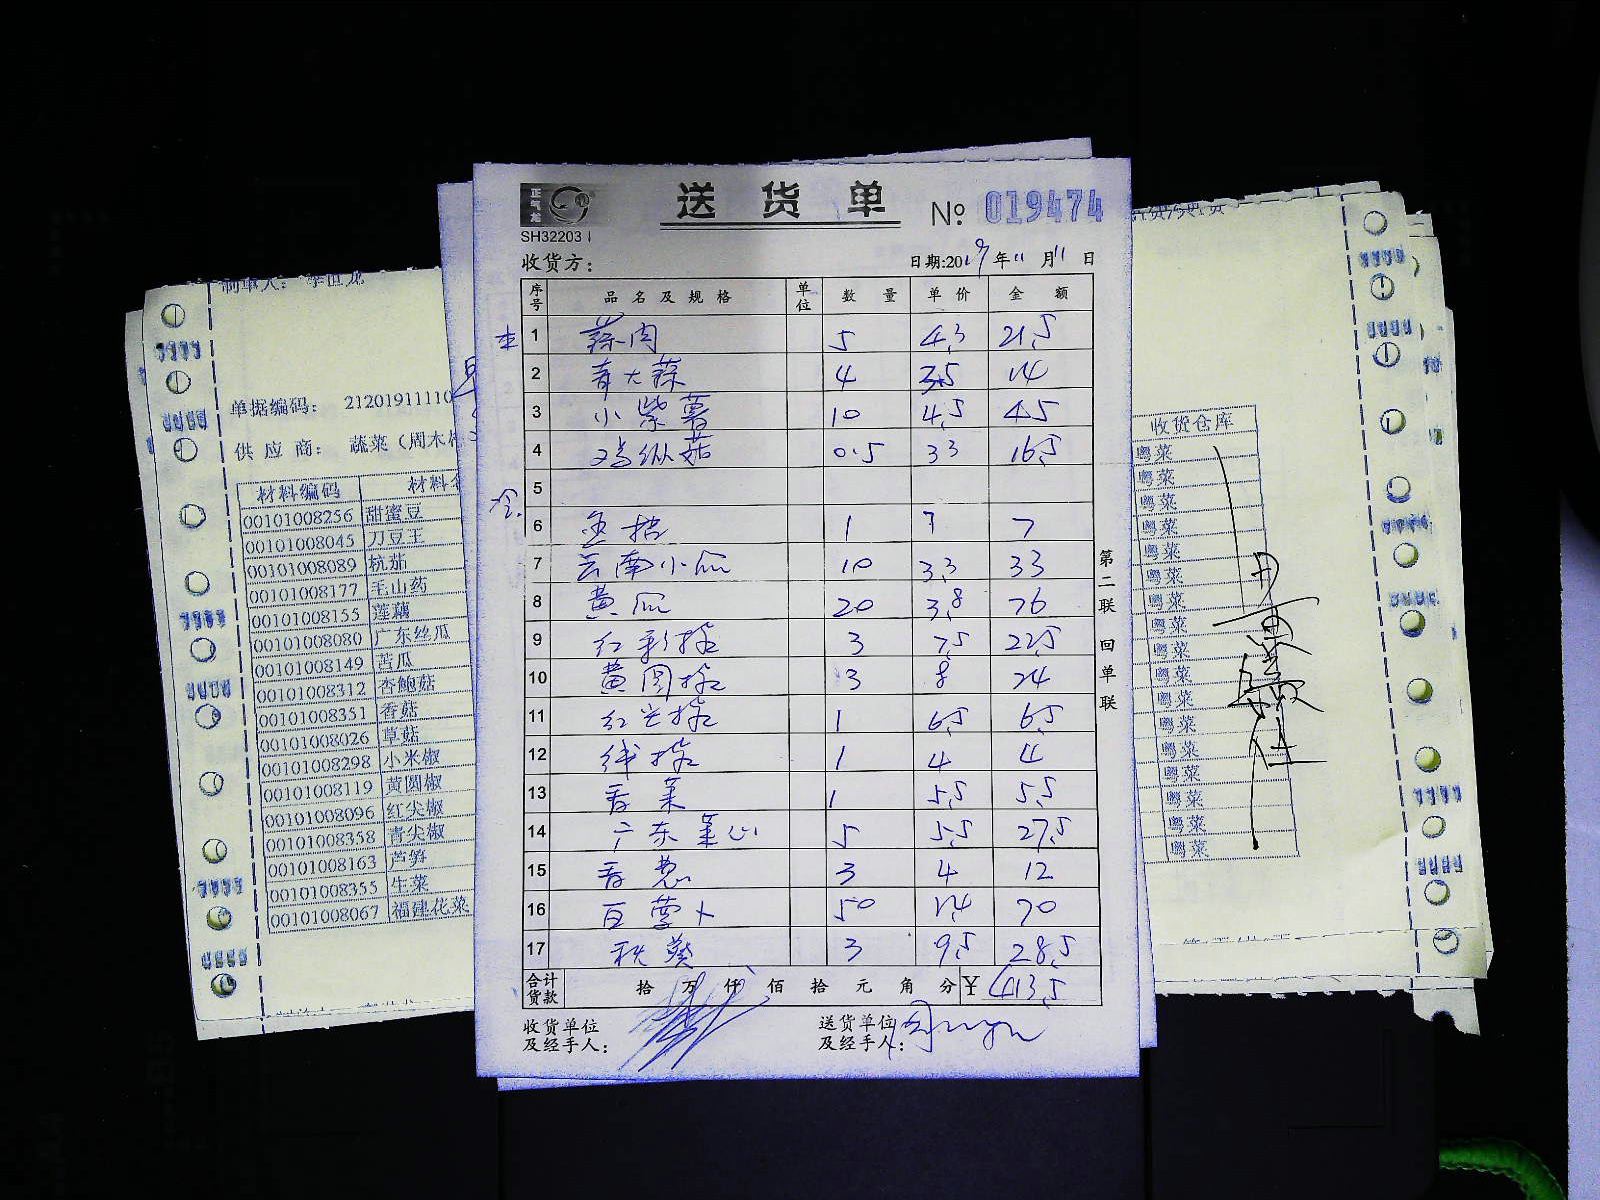 正气龙
送货单 № 019474
SH32203
收货方： 日期:2019年11月11日
序号 品名及规格 单位 数量 单价 金额
1 蒜肉 5 4.3 21.5
2 青大蒜 4 3.5 14
3 小紫薯 10 4.5 45
4 鸡枞菇 0.5 33 16.5
5
6 1 7 7
7 云南小瓜 10 3.3 33
8 黄瓜 20 3.8 76
9 红彩椒 3 7.5 22.5
10 黄圆椒 3 8 24
11 红尖椒 1 6.5 6.5
12 线椒 1 4 4
13 香菜 1 5.5 5.5
14 广东菜心 5 5.5 27.5
15 香葱 3 4 12
16 白萝卜 50 1.4 70
17 秋葵 3 9.5 28.5
合计货款 拾 万 仟 佰 拾 元 角 分 ¥ 413.5
收货单位及经手人： 送货单位及经手人：
第二联 回单联
制单人：李恒龙
单据编码： 21201911110
供应商： 蔬菜（周木
材料编码 材料
00101008256 甜蜜豆
00101008045 刀豆王
00101008089 杭茄
00101008177 毛山药
00101008155 莲藕
00101008080 广东丝瓜
00101008149 苦瓜
00101008312 杏鲍菇
00101008351 香菇
00101008026 草菇
00101008298 小米椒
00101008119 黄圆椒
00101008096 红尖椒
00101008358 青尖椒
00101008163 芦笋
00101008355 生菜
00101008067 福建花菜
收货仓库
粤菜
粤菜
粤菜
粤菜
粤菜
粤菜
粤菜
粤菜
粤菜
粤菜
粤菜
粤菜
粤菜
粤菜
粤菜
粤菜
粤菜